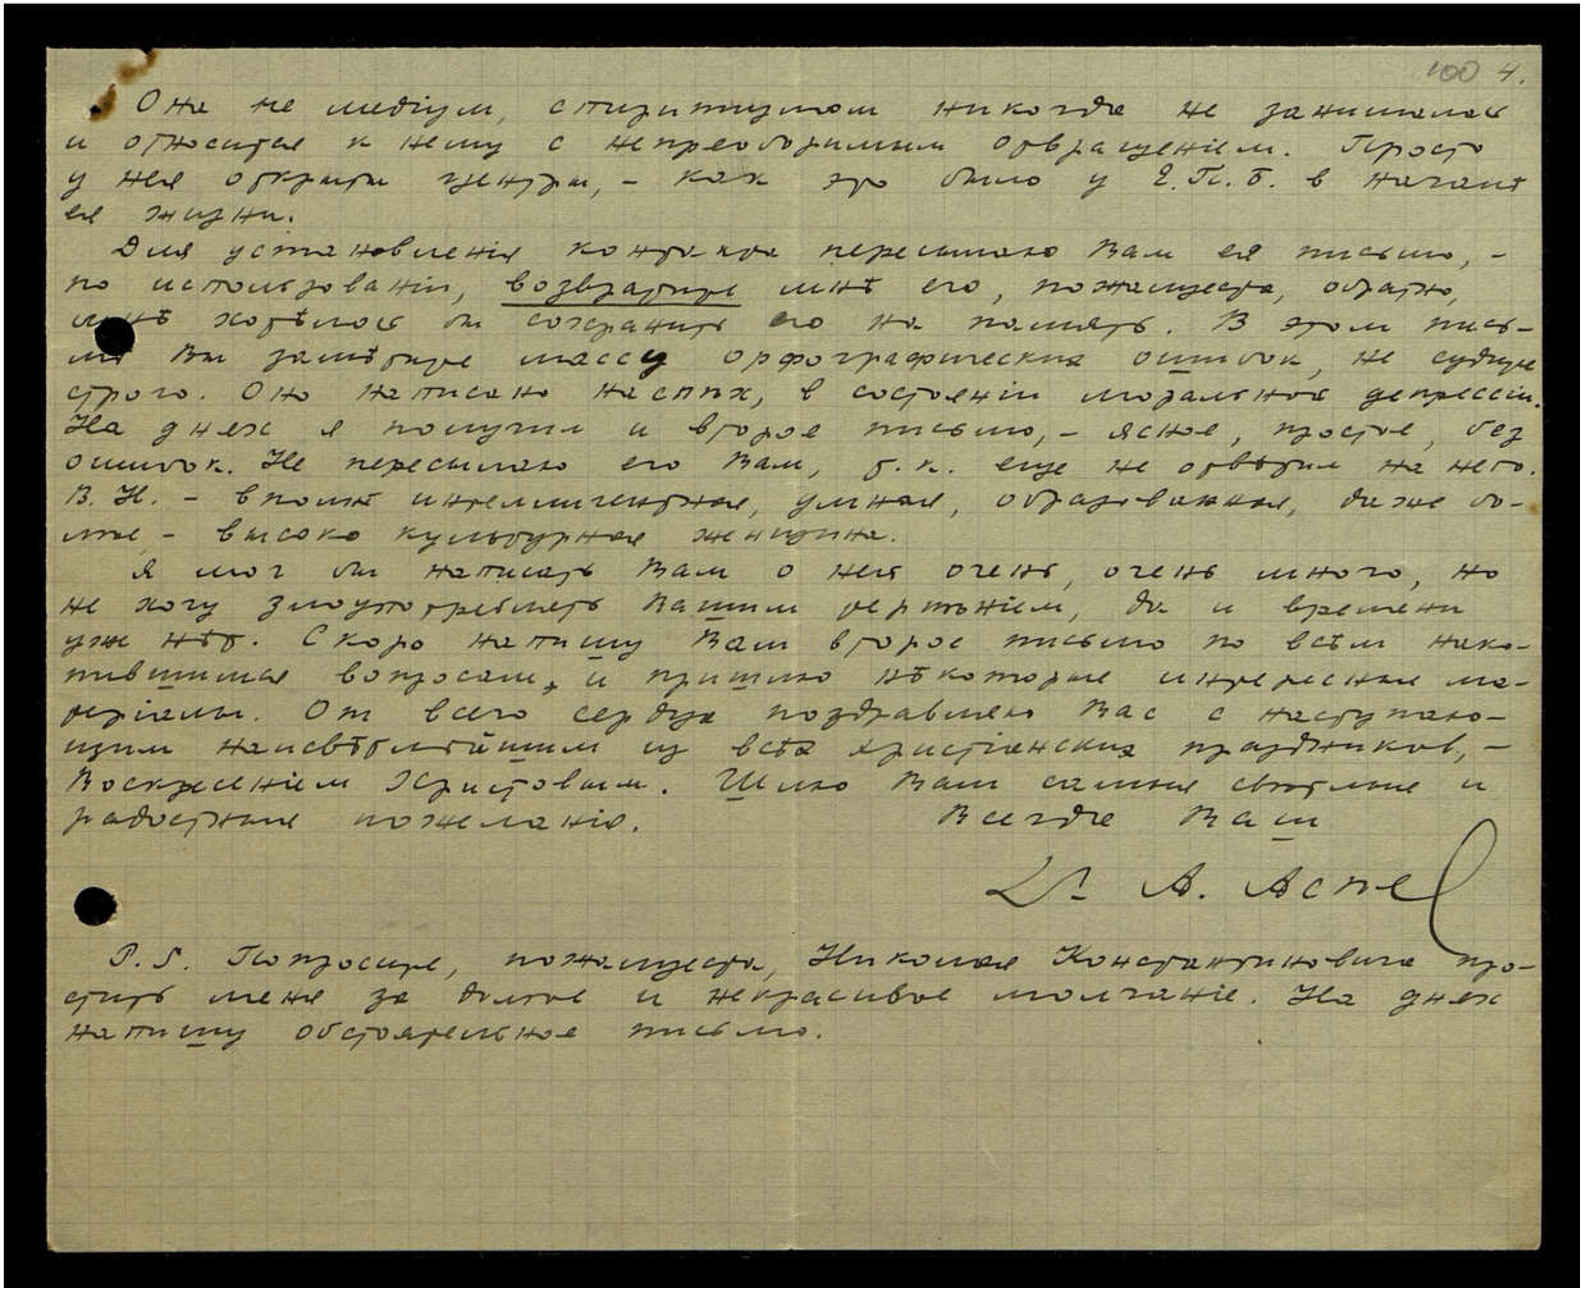 100 4.
Она не медіум, спиритизмом никогда не занималась
и относится к нему с непреоборимым отвращеніем. Просто
у нея открыты центры, – как это было у Е.П.Б. в началѣ
ея жизни.
Для установленія контакта пересылаю Вам ея письмо, –
по использованіи, возвратите мнѣ его, пожалуйста, обратно,
мнѣ хотѣлось бы сохранить его на память. В этом пись-
мѣ Вы замѣтите массу орфографических ошибок, не судите
строго. Оно написано наспѣх, в состояніи моральной депрессіи.
На днях я получил и второе письмо, – ясное, простое, без
ошибок. Не пересылаю его Вам, т.к. еще не отвѣтил на него.
В.Н. – вполнѣ интеллигентная, умная, образованная, даже бо-
лѣе, – высоко культурная женщина.
Я мог бы написать Вам о ней очень, очень много, но
не хочу злоупотреблять Вашим терпѣніем, да и времени
уже нѣт. Скоро напишу Вам второе письмо по всѣм нако-
пившимся вопросам, и пришлю нѣкоторые интересные ма-
теріалы. От всего сердца поздравляю Вас с наступаю-
щим наисвѣтлѣйшим из всѣх христіанских праздников, –
Воскресеніем Христовым. Шлю Вам самые свѣтлые и
радостные пожеланія.
Всегда Ваш
Dr. А. Аспел
P.S. Попросите, пожалуйста, Николая Константиновича про-
стить меня за долгое и некрасивое молчаніе. На днях
напишу обстоятельное письмо.